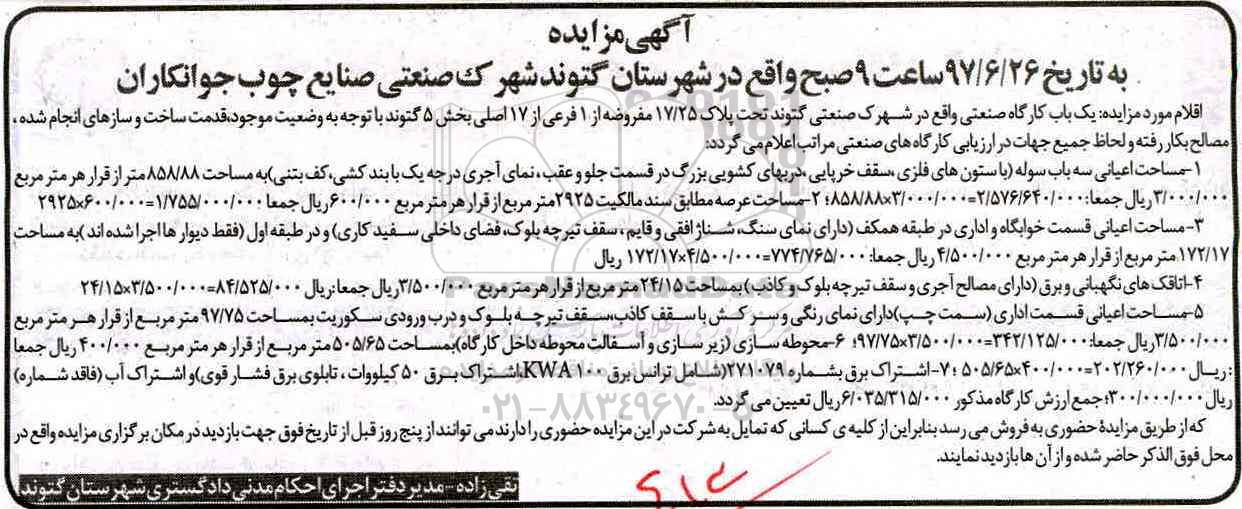 آگهی مزایده
به تاریخ ۹۷/۶/۲۶ ساعت ۹ صبح واقع در شهرستان گتوند شهرک صنعتی صنایع چوب جوانکاران
اقلام مورد مزایده: یک باب کارگاه صنعتی واقع در شهرک صنعتی گتوند تحت پلاک ۱۷/۲۵ مفروضه از ۱ فرعی از ۱۷ اصلی بخش ۵ گتوند با توجه به وضعیت موجود،قدمت ساخت و سازهای انجام شده ،
مصالح بکار رفته و لحاظ جمیع جهات در ارزیابی کارگاه های صنعتی مراتب اعلام می گردد:
۱-مساحت اعیانی سه باب سوله (با ستون های فلزی ،سقف خرپایی ،دربهای کشویی بزرگ در قسمت جلو و عقب ، نمای آجری درجه یک با بند کشی، کف بتنی)به مساحت ۸۵۸/۸۸ متر از قرار هر متر مربع
۳/۰۰۰/۰۰۰ ریال جمعا: ۸۵۸/۸۸×۳/۰۰۰/۰۰۰=۲/۵۷۶/۶۴۰/۰۰۰؛ ۲-مساحت عرصه مطابق سند مالکیت ۲۹۲۵ متر مربع از قرار هر متر مربع ۶۰۰/۰۰۰ ریال جمعا ۲۹۲۵×۶۰۰/۰۰۰=۱/۷۵۵/۰۰۰/۰۰۰
۳-مساحت اعیانی قسمت خوابگاه و اداری در طبقه همکف (دارای نمای سنگ، شناژ افقی و قایم ، سقف تیرچه بلوک، فضای داخلی سفید کاری) و در طبقه اول (فقط دیوار ها اجرا شده اند )به مساحت
۱۷۲/۱۷ متر مربع از قرار هر متر مربع ۴/۵۰۰/۰۰۰ ریال جمعا: ۱۷۲/۱۷×۴/۵۰۰/۰۰۰=۷۷۴/۷۶۵/۰۰۰ ریال
۴-اتاقک های نگهبانی و برق (دارای مصالح آجری و سقف تیرچه بلوک و کاذب) بمساحت ۲۴/۱۵ متر مربع از قرار هر متر مربع ۳/۵۰۰/۰۰۰ ریال جمعا:ریال ۲۴/۱۵×۳/۵۰۰/۰۰۰=۸۴/۵۲۵/۰۰۰
۵-مساحت اعیانی قسمت اداری (سمت چپ)دارای نمای رنگی و سر کش با سقف کاذب،سقف تیرچه بلوک و درب ورودی سکوریت بمساحت ۹۷/۷۵ متر مربع از قرار هر متر مربع
۳/۵۰۰/۰۰۰ ریال جمعا: ۹۷/۷۵×۳/۵۰۰/۰۰۰=۳۴۲/۱۲۵/۰۰۰؛ ۶-محوطه سازی (زیر سازی و آسفالت محوطه داخل کارگاه)بمساحت ۵۰۵/۶۵ متر مربع از قرار هر متر مربع ۴۰۰/۰۰۰ ریال جمعا
: ریال ۵۰۵/۶۵×۴۰۰/۰۰۰=۲۰۲/۲۶۰/۰۰۰ ؛۷-اشتراک برق بشماره ۲۷۱۰۷۹(شامل ترانس برق ۱۰۰ KWA،اشتراک برق ۵۰ کیلووات ، تابلوی برق فشار قوی)و اشتراک آب (فاقد شماره)
ریال ۳۰۰/۰۰۰/۰۰۰؛ جمع ارزش کارگاه مذکور ۶/۰۳۵/۳۱۵/۰۰۰ ریال تعیین می گردد.
که از طریق مزایدهٔ حضوری به فروش می رسد بنابراین از کلیه ی کسانی که تمایل به شرکت در این مزایده حضوری را دارند می توانند از پنج روز قبل از تاریخ فوق جهت بازدید در مکان برگزاری مزایده واقع در
محل فوق الذکر حاضر شده و از آن ها بازدید نمایند.
تقی زاده - مدیر دفتر اجرای احکام مدنی دادگستری شهرستان گتوند
ParsNamadData
۰۲۱-۸۸۳۴۹۶۷۰-۵